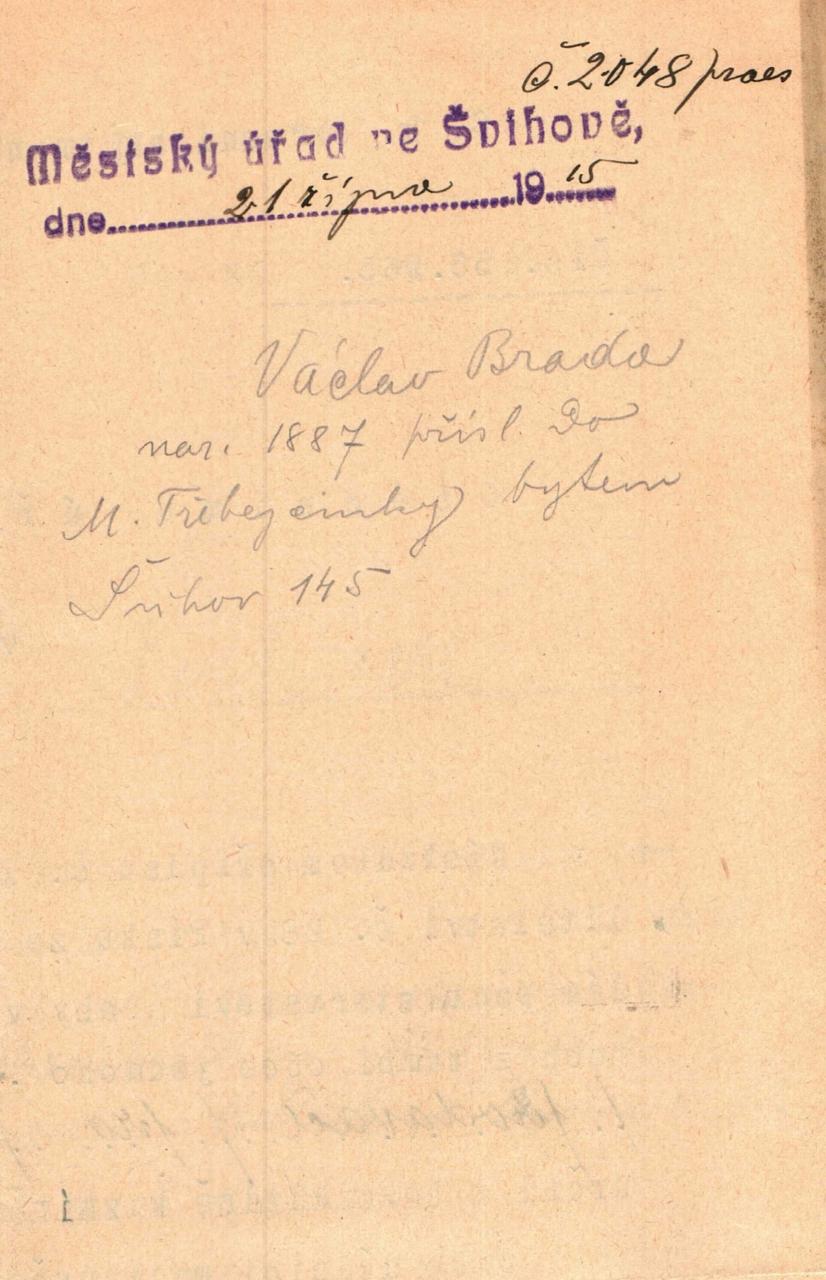 č. 2048/praes
Městský úřad ve Švihově,
dne 21 října 1915
Václav Brada
nar. 1887 přísl. Do
M. Třebejcinky bytem
Švihov 145